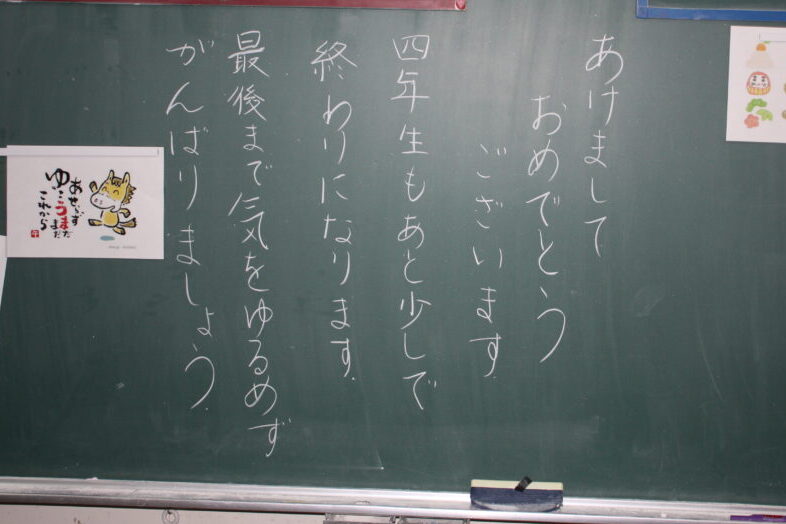 あけまして
おめでとう
ございます
四年生もあと少しで
終わりになります.
最後まで気をゆるめず
がんばりましょう.
あせらず
ゆこうまだ
まだ
これから